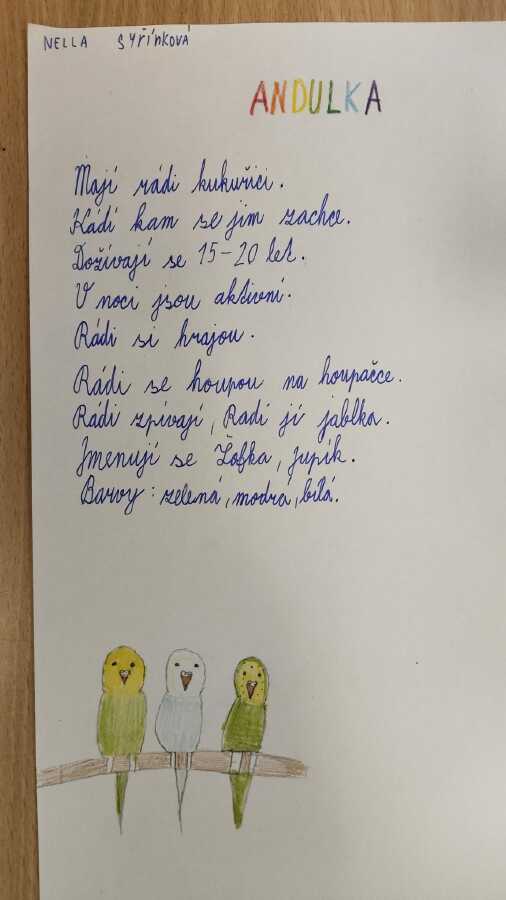 NELLA SYŘÍNKOVÁ
ANDULKA
Mají rádi kukuřici.
Kádí kam se jim zachce.
Dožívají se 15-20 let.
V noci jsou aktivní.
Rádi si hrajou.
Rádi se houpou na houpačce.
Rádi zpívají, Radi jí jablka.
Jmenují se Žofka, Jupík.
Barvy: zelená, modrá, bílá.